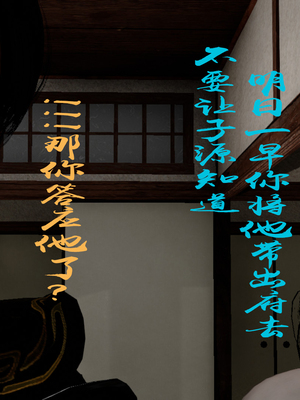 明日一早你将他带出府去
不要让子源知道
……那你答应他了？